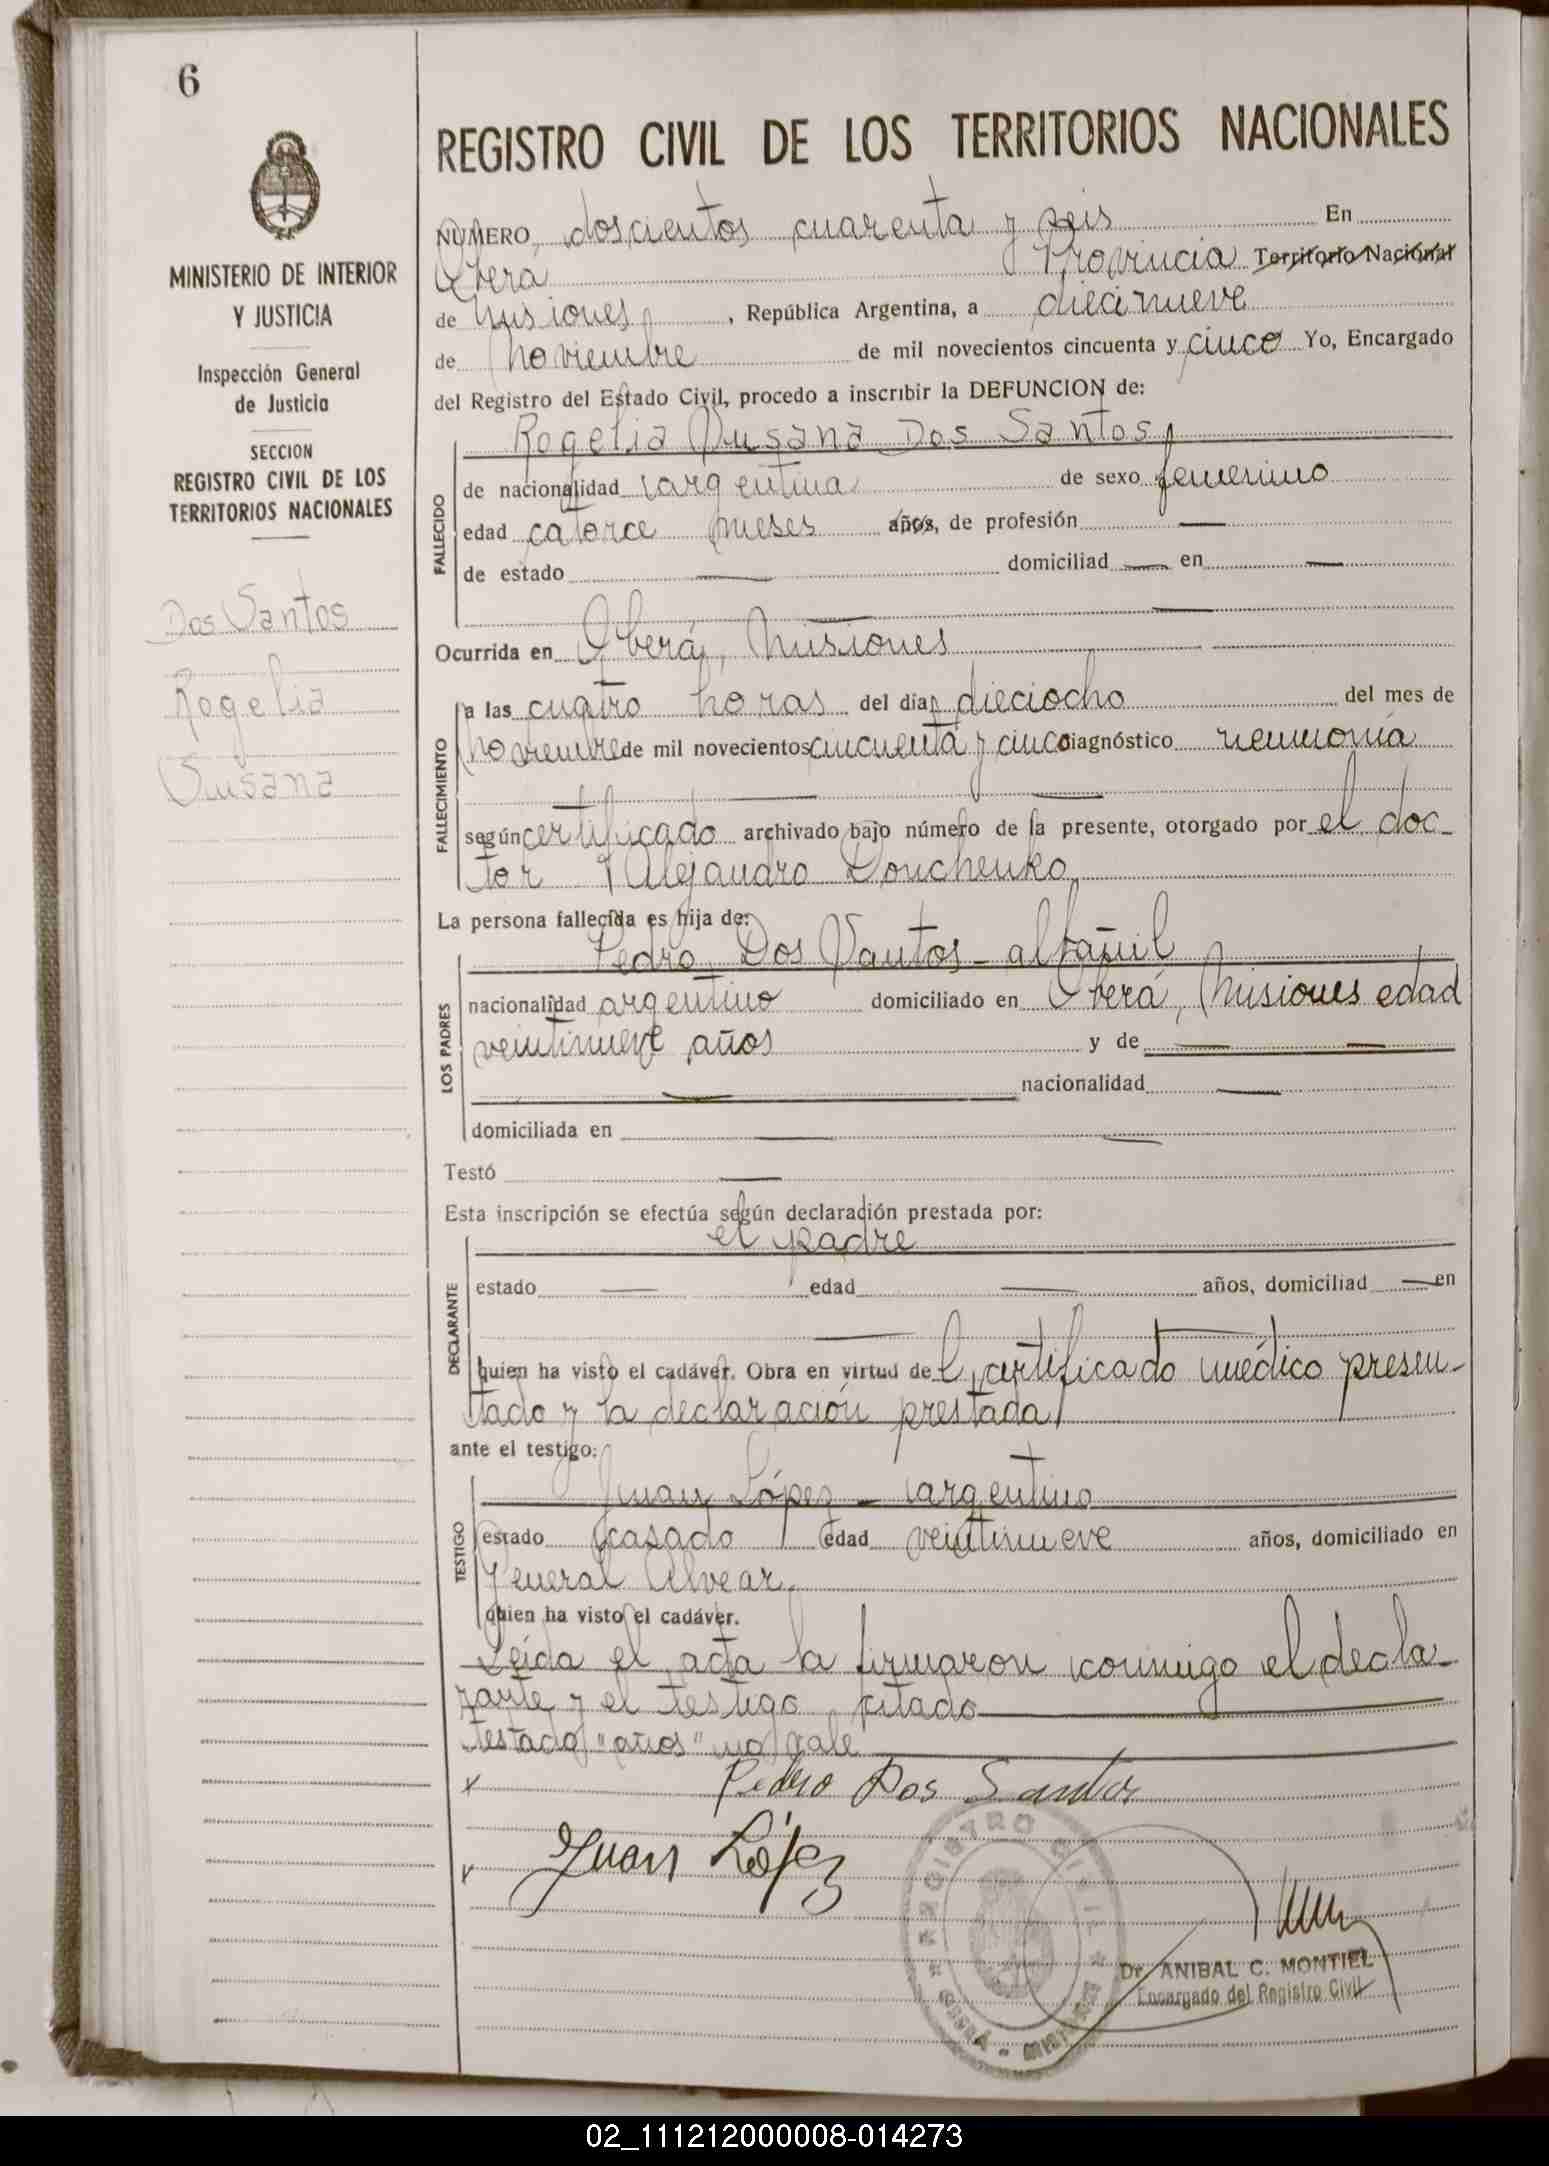 6
MINISTERIO DE INTERIOR
Y JUSTICIA
Inspección General
de Justicia
SECCION
REGISTRO CIVIL DE LOS
TERRITORIOS NACIONALES
Dos Santos
Rogelia
Susana
REGISTRO CIVIL DE LOS TERRITORIOS NACIONALES
NUMERO doscientos cuarenta y seis En
Oberá Provincia Territorio Nacional
de Misiones, República Argentina, a diecinueve
de noviembre de mil novecientos cincuenta y cinco Yo, Encargado
del Registro del Estado Civil, procedo a inscribir la DEFUNCION de:
Rogelia Susana Dos Santos
FALLECIDO
de nacionalidad argentina de sexo femenino
edad catorce meses años, de profesión —
de estado — domiciliad — en —
—
Ocurrida en Oberá, Misiones
FALLECIMIENTO
a las cuatro horas del día dieciocho del mes de
noviembre de mil novecientos cincuenta y cinco diagnóstico neumonía
— —
según certificado archivado bajo número de la presente, otorgado por el doc-
tor Alejandro Donchenko
La persona fallecida es hija de:
LOS PADRES
Pedro Dos Santos - albañil
nacionalidad argentino domiciliado en Oberá, Misiones edad
veintinueve años y de — —
— nacionalidad —
domiciliada en — —
Testó —
Esta inscripción se efectúa según declaración prestada por:
DECLARANTE
el padre
estado — edad — años, domiciliad — en
— —
quien ha visto el cadáver. Obra en virtud del certificado médico presen-
tado y la declaración prestada
ante el testigo:
TESTIGO
Juan López - argentino
estado casado edad veintinueve años, domiciliado en
General Alvear,
quien ha visto el cadáver.
Leída el acta la firmaron conmigo el decla-
rante y el testigo citado
testado "años" no vale
x Pedro Dos Santos
x Juan López
REGISTRO CIVIL
OBERÁ - MISIONES
Dr. ANIBAL C. MONTIEL
Encargado del Registro Civil
02_111212000008-014273